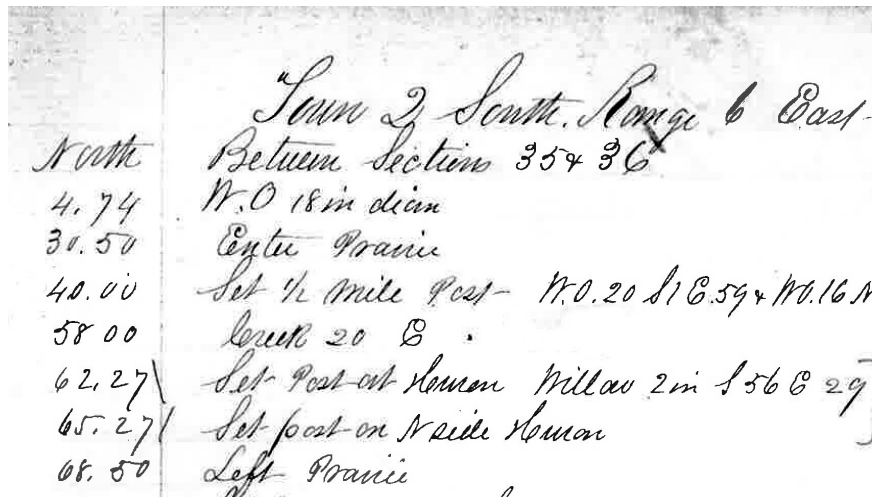 Town 2 South. Range 6 East
North Between Sections 35 & 36
4.74 W.O 18 in diam
30.50 Enter Prairie
40.00 Set 1/2 Mile Post - W.O. 20 S 1 E. 59 & W.O. 16 N
58 00 Creek 20 E.
62.27 Set Post at Huron Willow 2 in S 56 E 29
65.27 Set post on N side Huron
68.50 Left Prairie